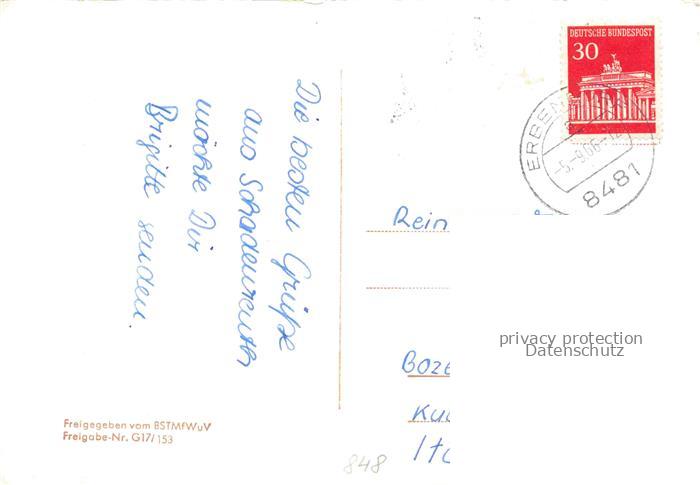 DEUTSCHE BUNDESPOST
30
-5.-9.66.-12
8481
Die besten Grüße
aus Schadenreuth
möchte Dir
Brigitte senden.
Rein
Boze
Ita
privacy protection
Datenschutz
Freigegeben vom BSTMfWuV
Freigabe-Nr. G17/153
848